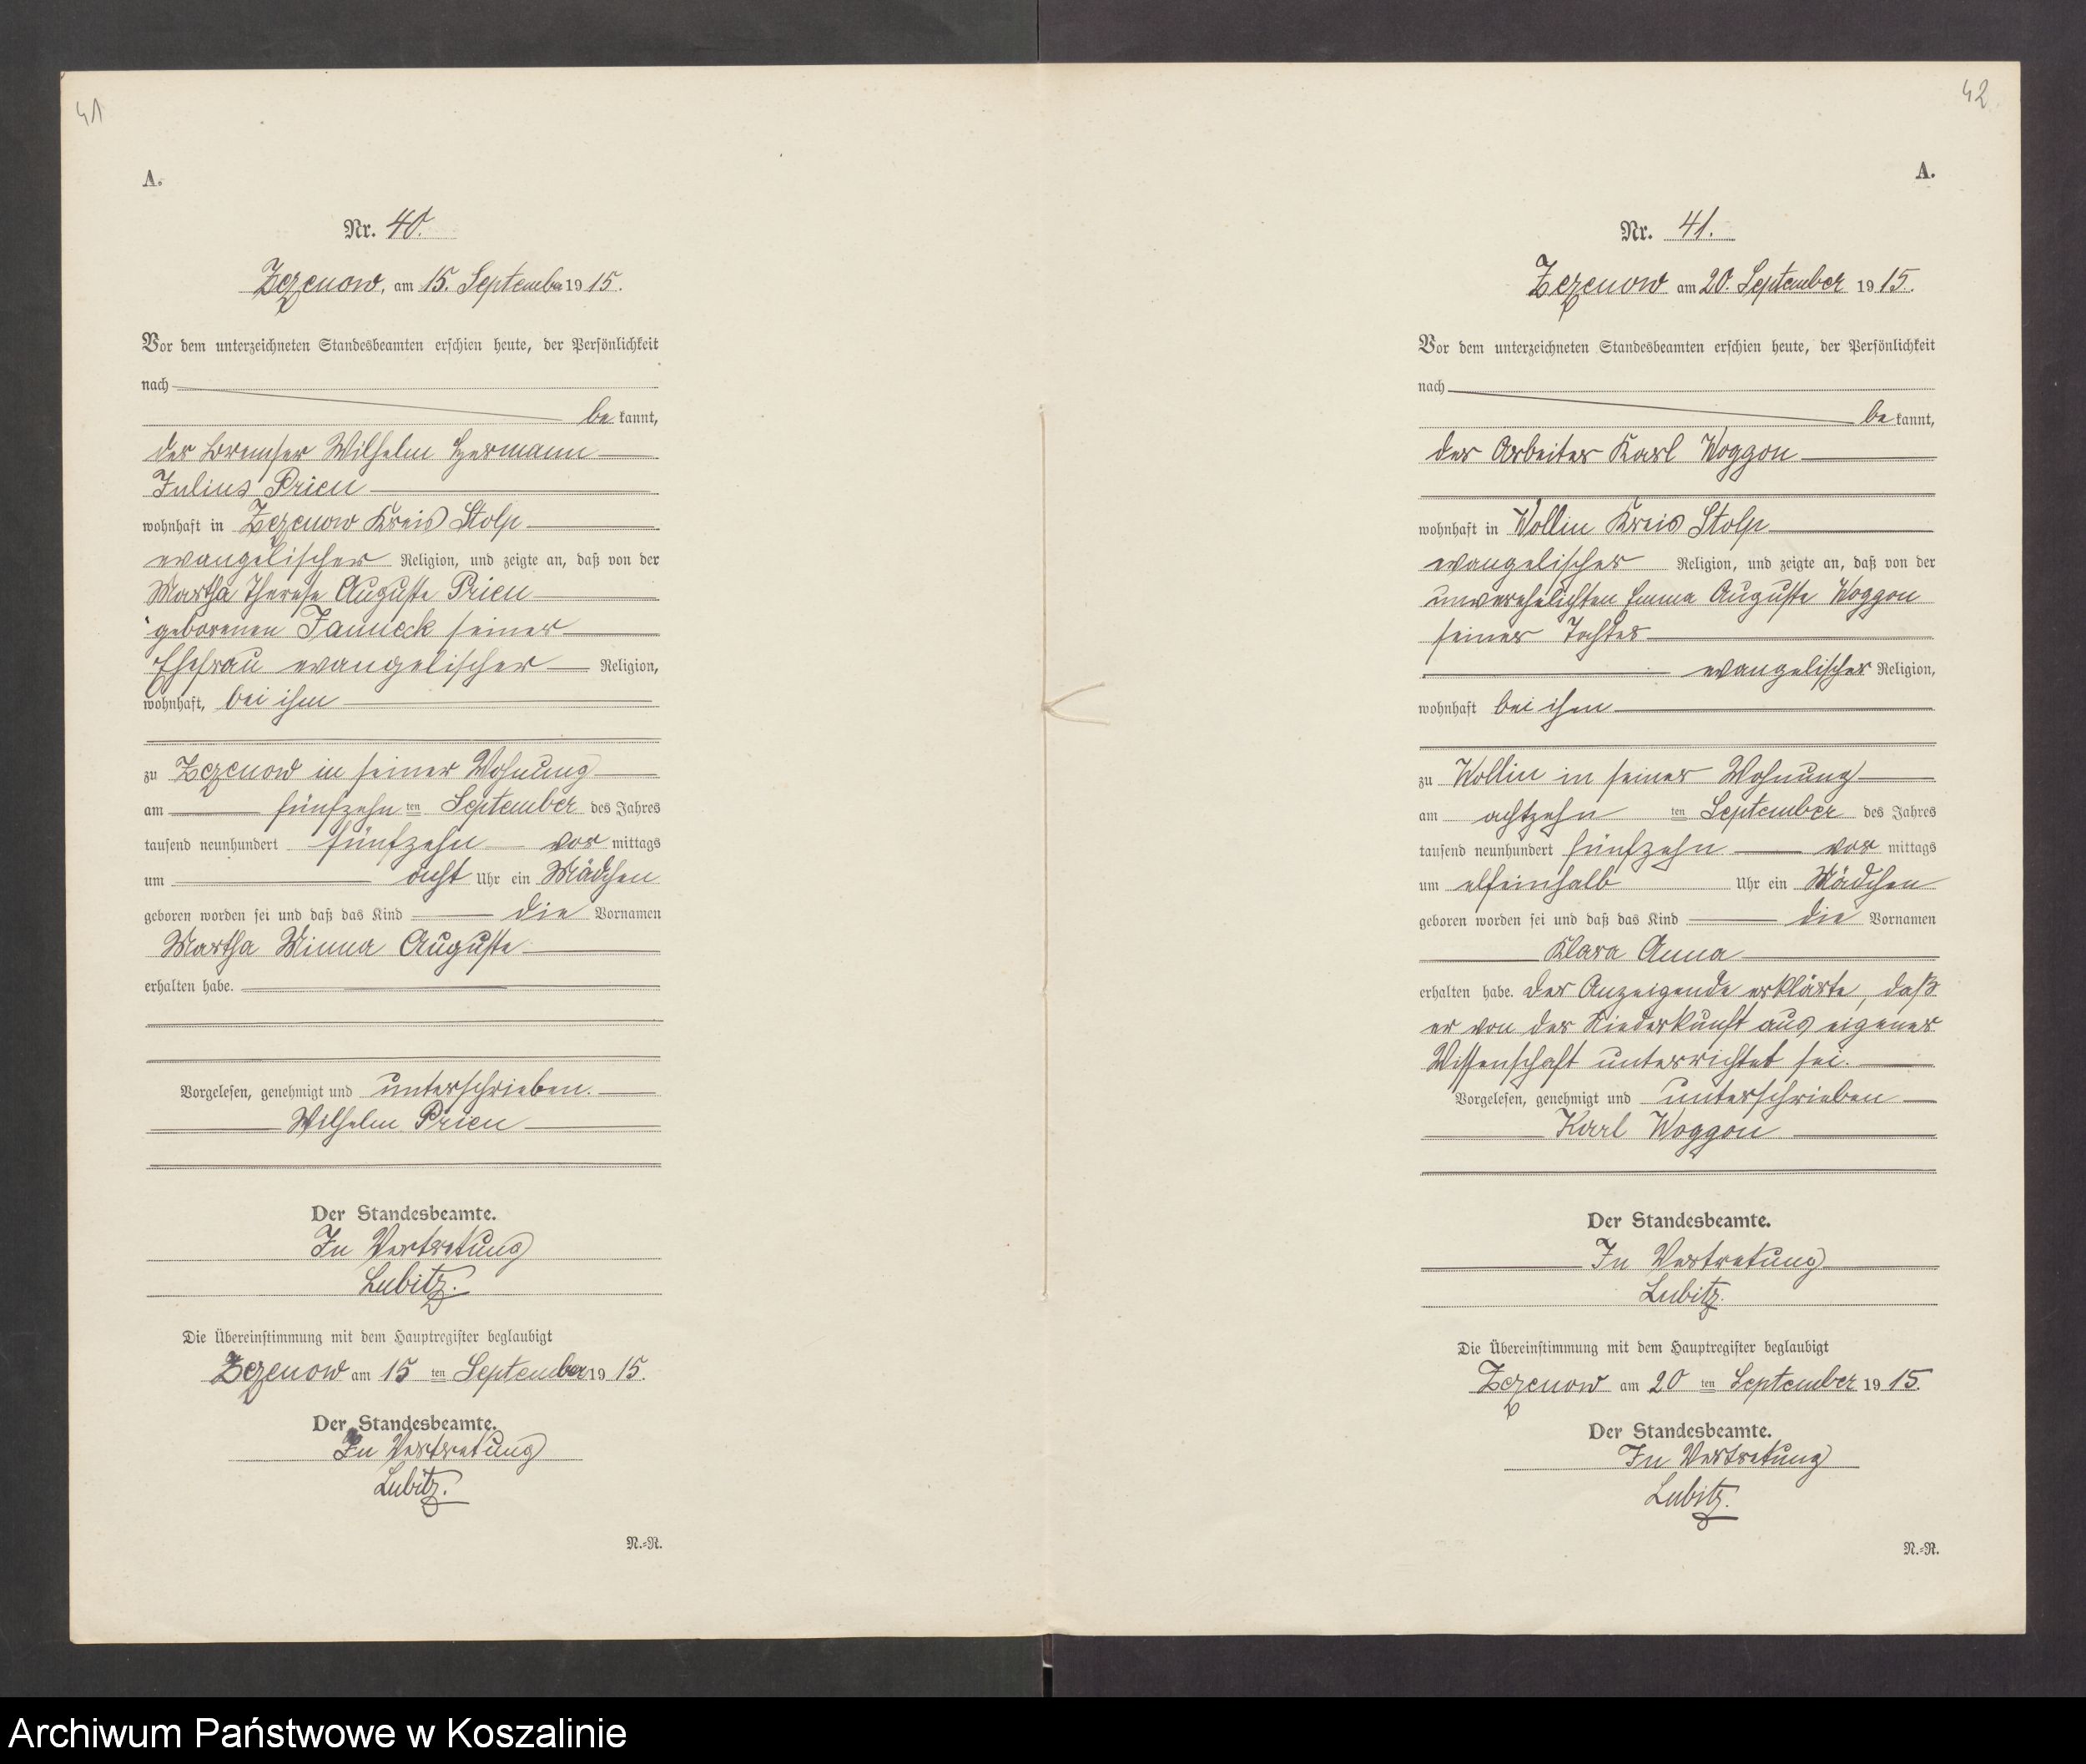 41
A.
Nr. 40.
Zezenow, am 15. September 1915.
Vor dem unterzeichneten Standesbeamten erschien heute, der Persönlichkeit
nach
be kannt,
der Bremser Wilhelm Hermann
Julius Prien
wohnhaft in Zezenow Kreis Stolp
evangelischer Religion, und zeigte an, daß von der
Martha Therese Auguste Prien
geborenen Janneck seiner
Ehefrau evangelischer Religion,
wohnhaft, bei ihm
zu Zezenow in seiner Wohnung
am fünfzehn ten September des Jahres
tausend neunhundert fünfzehn vor mittags
um acht Uhr ein Mädchen
geboren worden sei und daß das Kind die Vornamen
Martha Minna Auguste
erhalten habe.
Vorgelesen, genehmigt und unterschrieben.
Wilhelm Prien
Der Standesbeamte.
In Vertretung
Lubitz.
Die Übereinstimmung mit dem Hauptregister beglaubigt
Zezenow am 15 ten September 1915.
Der Standesbeamte.
In Vertretung
Lubitz.
N.=R.
42
A.
Nr. 41.
Zezenow am 20. September 1915.
Vor dem unterzeichneten Standesbeamten erschien heute, der Persönlichkeit
nach
be kannt,
der Arbeiter Karl Woggon
wohnhaft in Wollin Kreis Stolp
evangelischer Religion, und zeigte an, daß von der
unverehelichten Emma Auguste Woggon
seiner Tochter
evangelischer Religion,
wohnhaft bei ihm
zu Wollin in seiner Wohnung
am achtzehn ten September des Jahres
tausend neunhundert fünfzehn vor mittags
um elfeinhalb Uhr ein Mädchen
geboren worden sei und daß das Kind die Vornamen
Klara Anna
erhalten habe. Der Anzeigende erklärte, daß
er von der Niederkunft aus eigener
Wissenschaft unterrichtet sei.
Vorgelesen, genehmigt und unterschrieben
Karl Woggon
Der Standesbeamte.
In Vertretung
Lubitz.
Die Übereinstimmung mit dem Hauptregister beglaubigt
Zezenow am 20 ten September 1915.
Der Standesbeamte.
In Vertretung
Lubitz.
N.=R.
Archiwum Państwowe w Koszalinie